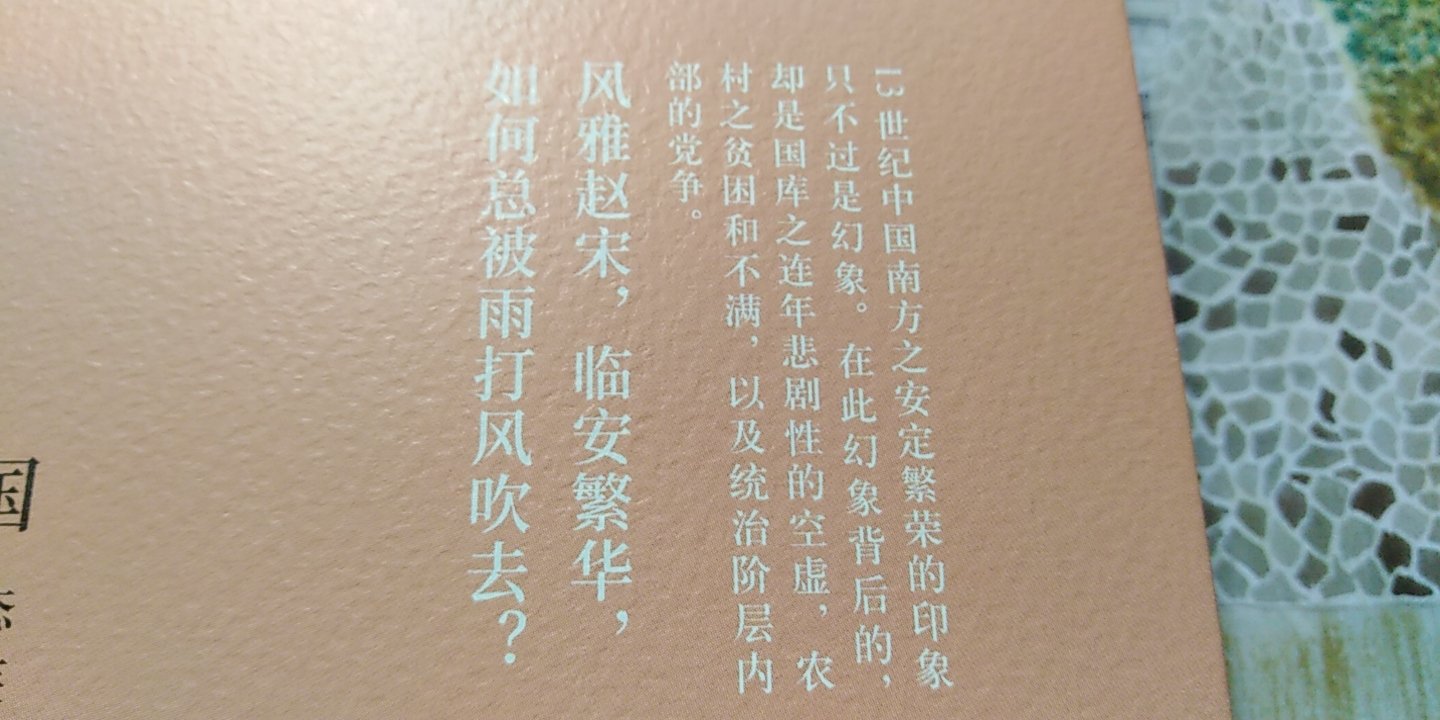 13世纪中国南方之安定繁荣的印象
只不过是幻象。在此幻象背后的，
却是国库之连年悲剧性的空虚，农
村之贫困和不满，以及统治阶层内
部的党争。
风雅赵宋，临安繁华，
如何总被雨打风吹去？
国